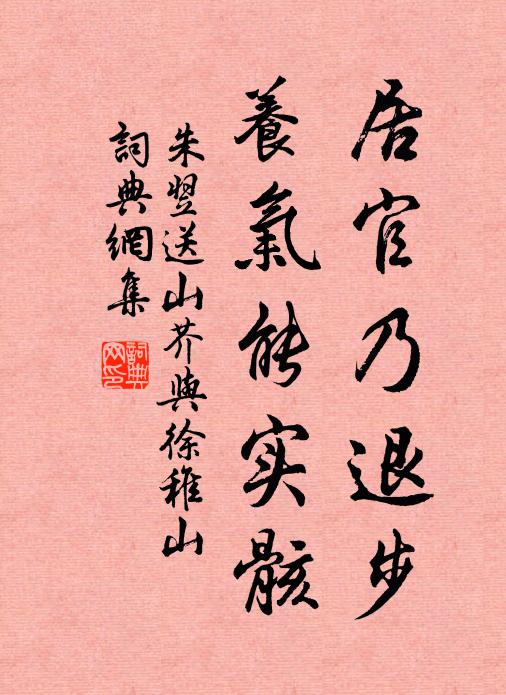 居官乃退步
養氣能实骸
朱翌送山芥與徐稚山
詞典網集
詞典網印